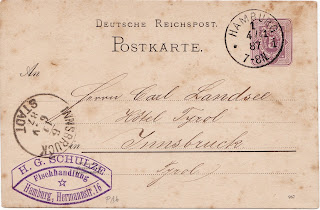 DEUTSCHE REICHSPOST.
POSTKARTE.
HAMBURG
1
4/1
87
7-8N.
An
Herrn Carl Landsee
Hôtel Tyrol
in Innsbruck
Tyrol
INNSBRUCK
STADT
H. G. SCHULZE
Fischhandlung
Hamburg, Hermannstr. 16